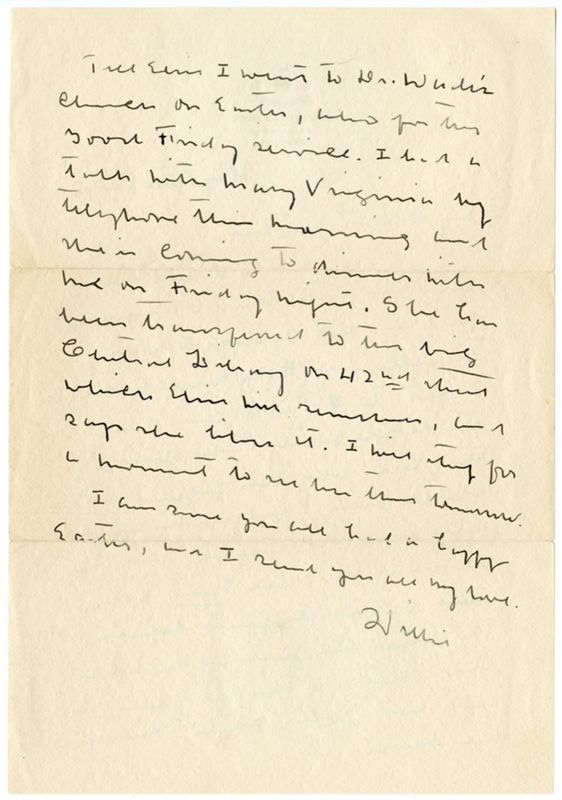 Tell Elsie I went to Dr. Ward's
church on Easter, also for the
Good Friday service. I had a
talk with Mary Virginia by
telephone this morning and
she is coming to dinner with
me on Friday night. She has
been transferred to the big
Central Library on 42nd street
which Elsie will remember, and
says she likes it. I will stop for
a moment to see her there tomorrow.
I am sure you all had a happy
Easter, and I send you all my love.
Willie